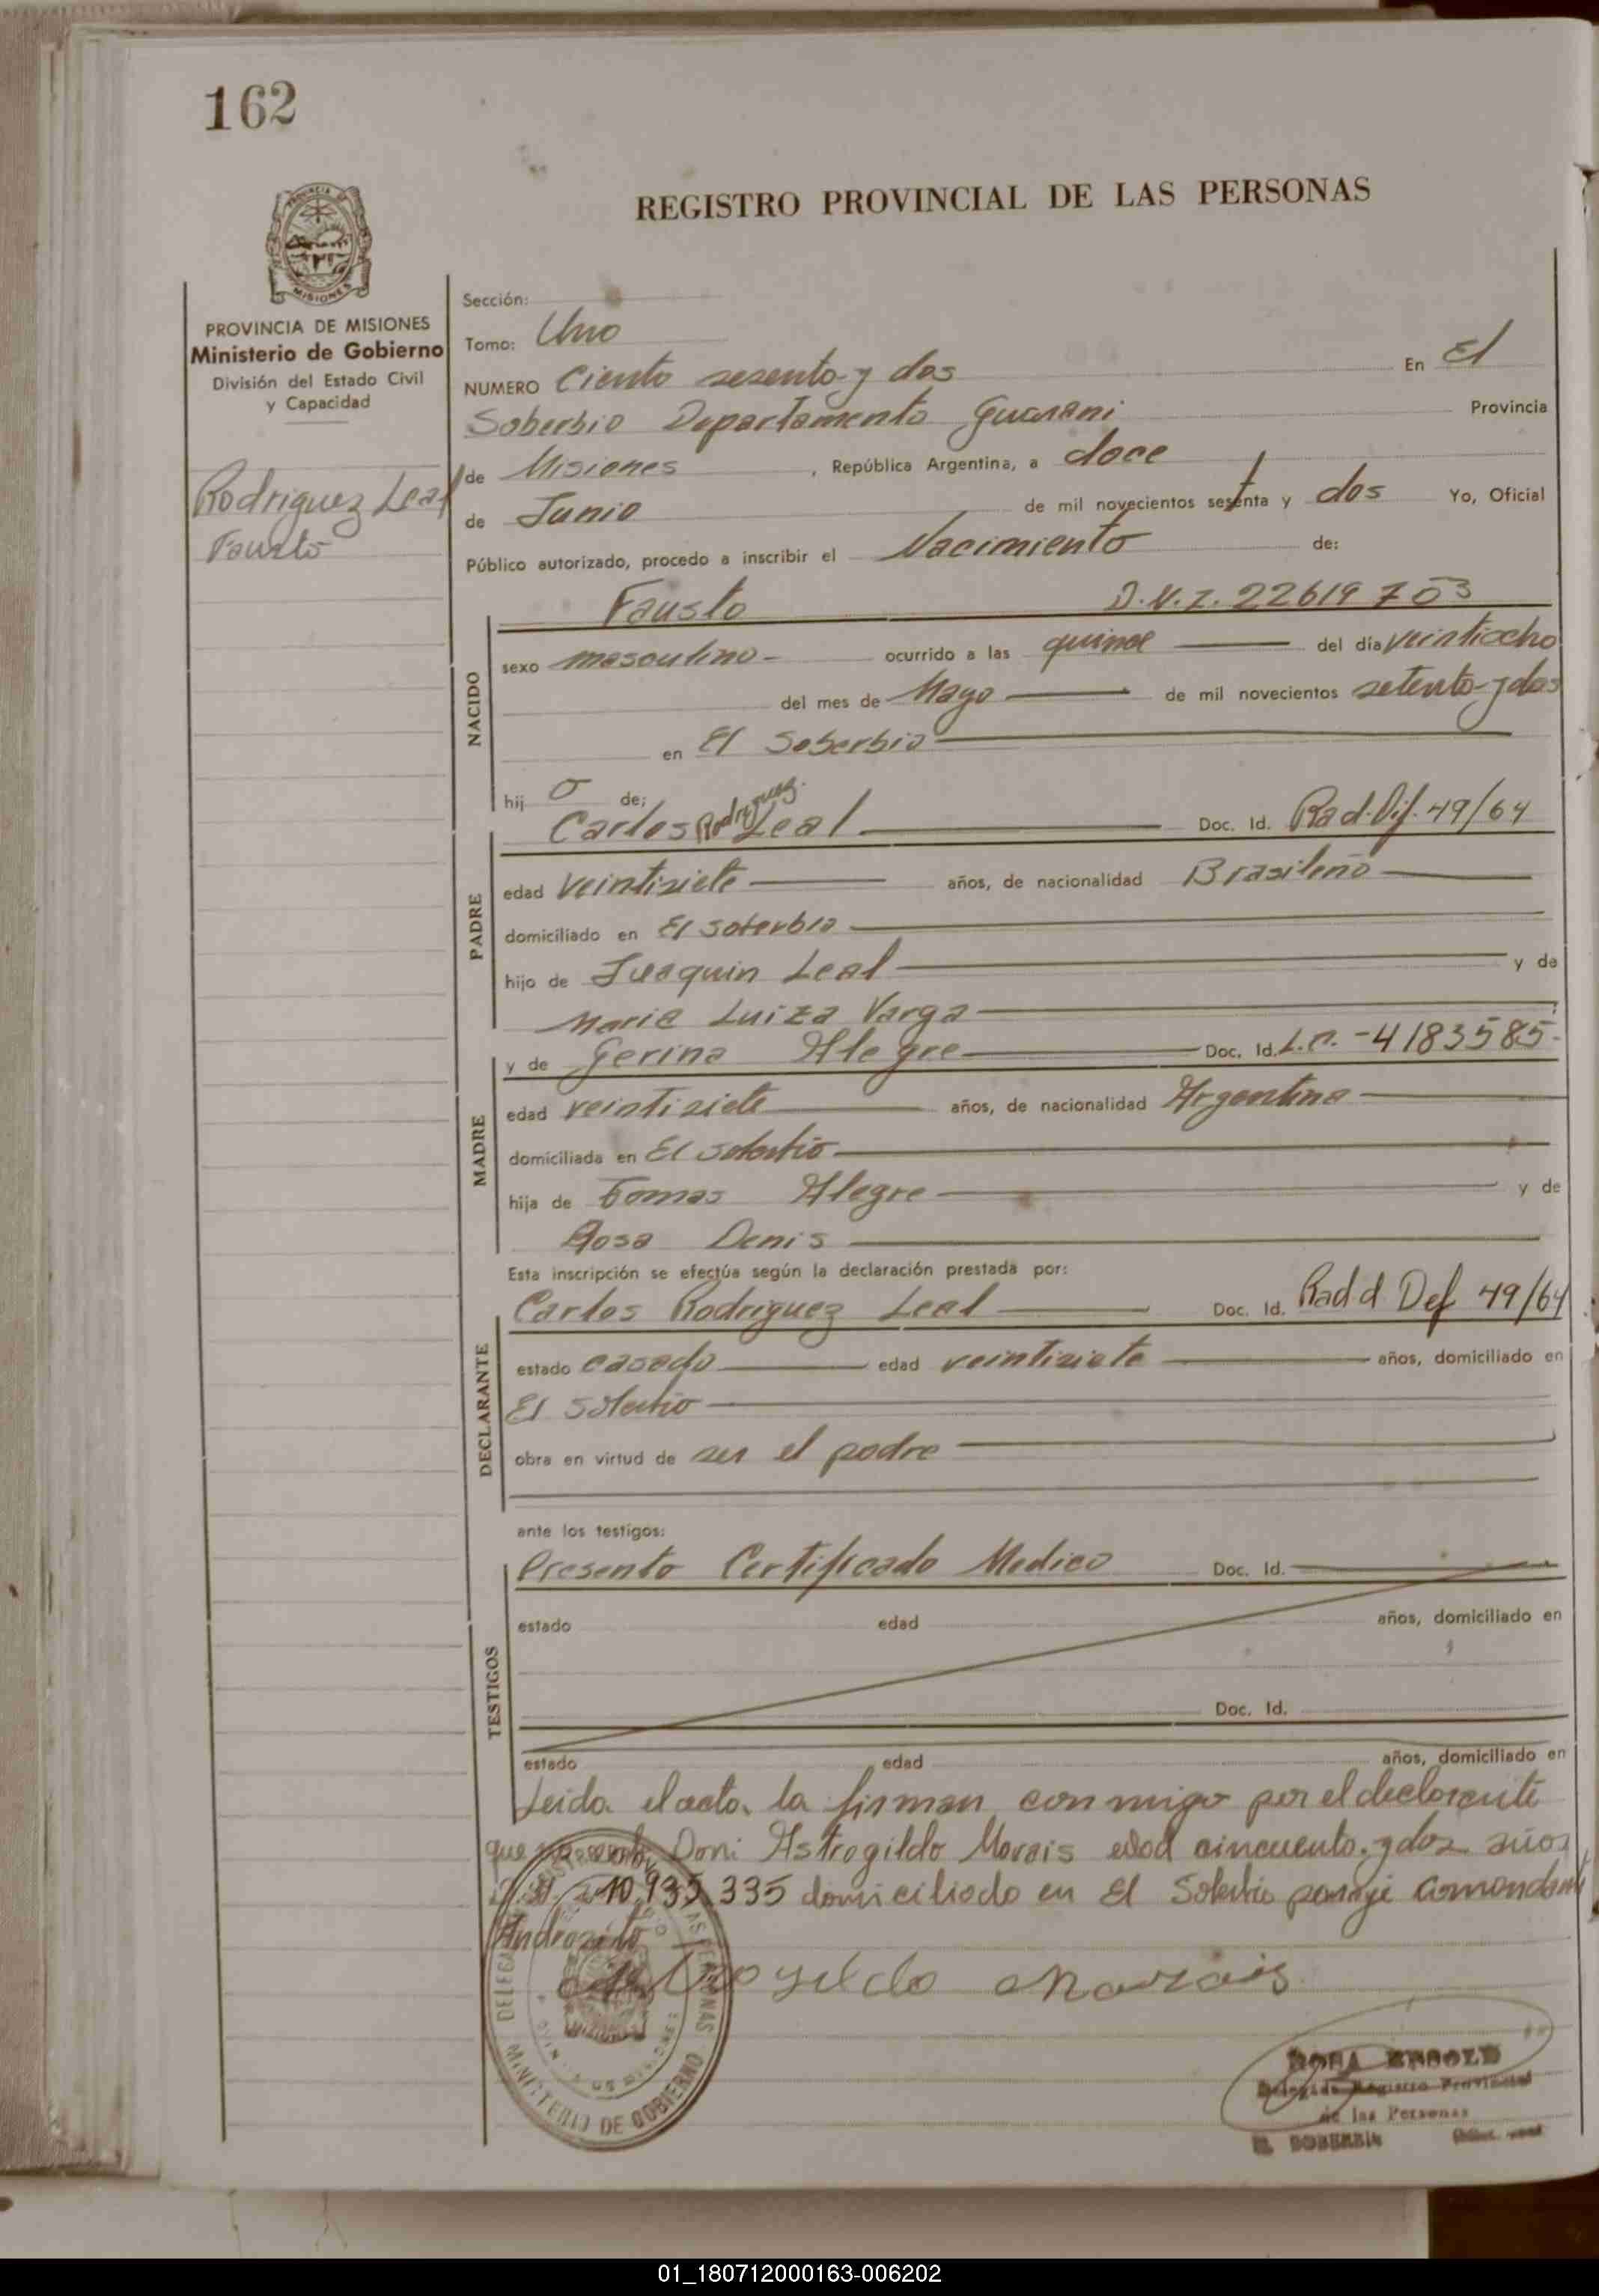 162
REGISTRO PROVINCIAL DE LAS PERSONAS
PROVINCIA DE MISIONES
Ministerio de Gobierno
División del Estado Civil
y Capacidad
Rodriguez Leal
Fausto
Sección:
Tomo: Uno
NUMERO Ciento sesenta y dos En El
Soberbio Departamento Guarani Provincia
de Misiones, República Argentina, a doce
de Junio de mil novecientos sesenta y dos Yo, Oficial
Público autorizado, procedo a inscribir el Nacimiento de:
Fausto D.N.I. 22619703
NACIDO
sexo masculino - ocurrido a las quince del día veintiocho
del mes de Mayo de mil novecientos setenta y dos
en El Soberbio
hij o de;
Carlos Rodriguez Leal Doc. Id. Rad. Dif. 49/64
PADRE
edad veintisiete años, de nacionalidad Brasileño
domiciliado en El Soberbio
hijo de Juaquin Leal y de
Maria Luiza Varga
y de Gerina Alegre Doc. Id. L.C. - 4183585-
MADRE
edad veintisiete años, de nacionalidad Argentina
domiciliada en El Soberbio
hija de Tomas Alegre y de
Rosa Denis
Esta inscripción se efectúa según la declaración prestada por:
Carlos Rodriguez Leal Doc. Id. Rad d Def 49/64
DECLARANTE
estado casado edad veintisiete años, domiciliado en
El Soberbio
obra en virtud de ser el padre
ante los testigos:
Presento Certificado Medico Doc. Id.
TESTIGOS
estado edad años, domiciliado en
Doc. Id.
estado edad años, domiciliado en
Leida el acta, la firman conmigo por el declarante
que Don: Astrogildo Morais edad cincuenta y dos años
10.935.335 domiciliado en El Soberbio paraje Comandante
Andresito
Astrogildo Morais
MINISTERIO DE GOBIERNO
Delegada Registro Provincial
de las Personas
EL SOBERBIO
01_180712000163-006202